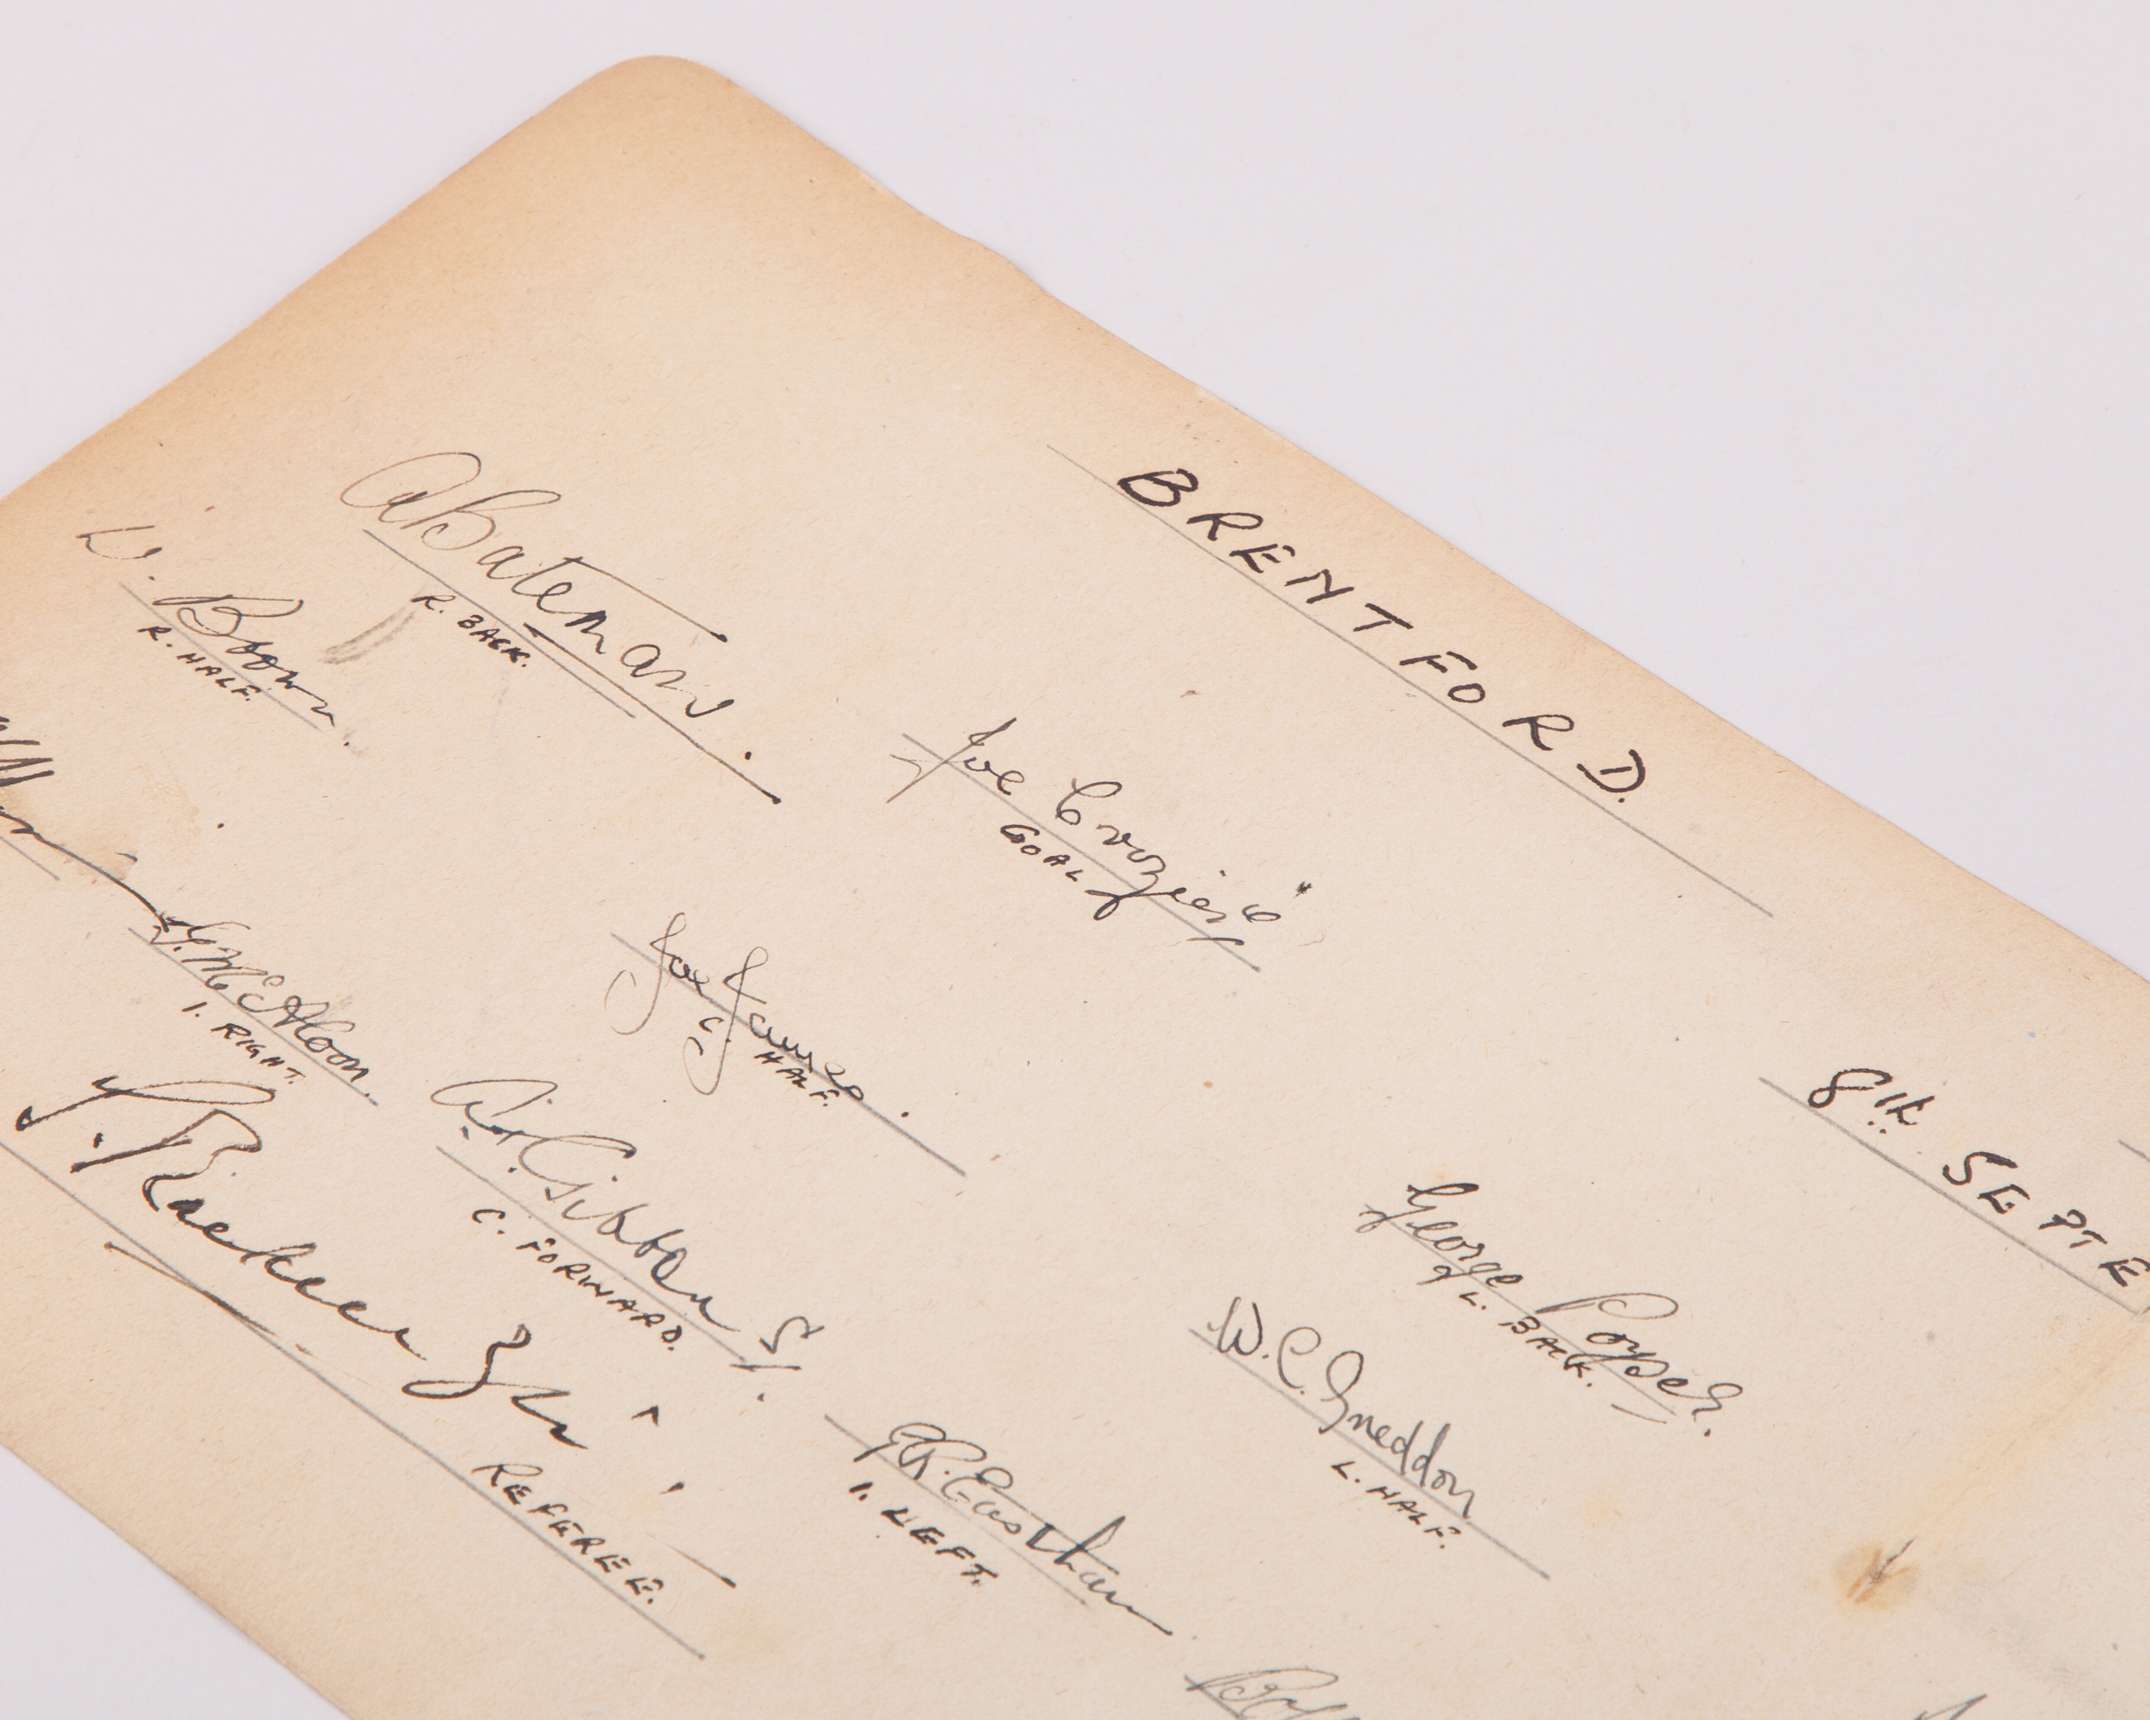 BRENTFORD.
8th. SEPTE
Joe Crozier
GOAL
A Bateman.
R. BACK.
George Poyser.
L. BACK.
D. Brown.
R. HALF.
Joe James.
C. HALF.
W. C. Sneddon
L. HALF.
G. McAloon.
I. RIGHT.
A. H. Gibbons
C. FORWARD.
G R. Eastham
I. LEFT.
REFEREE.